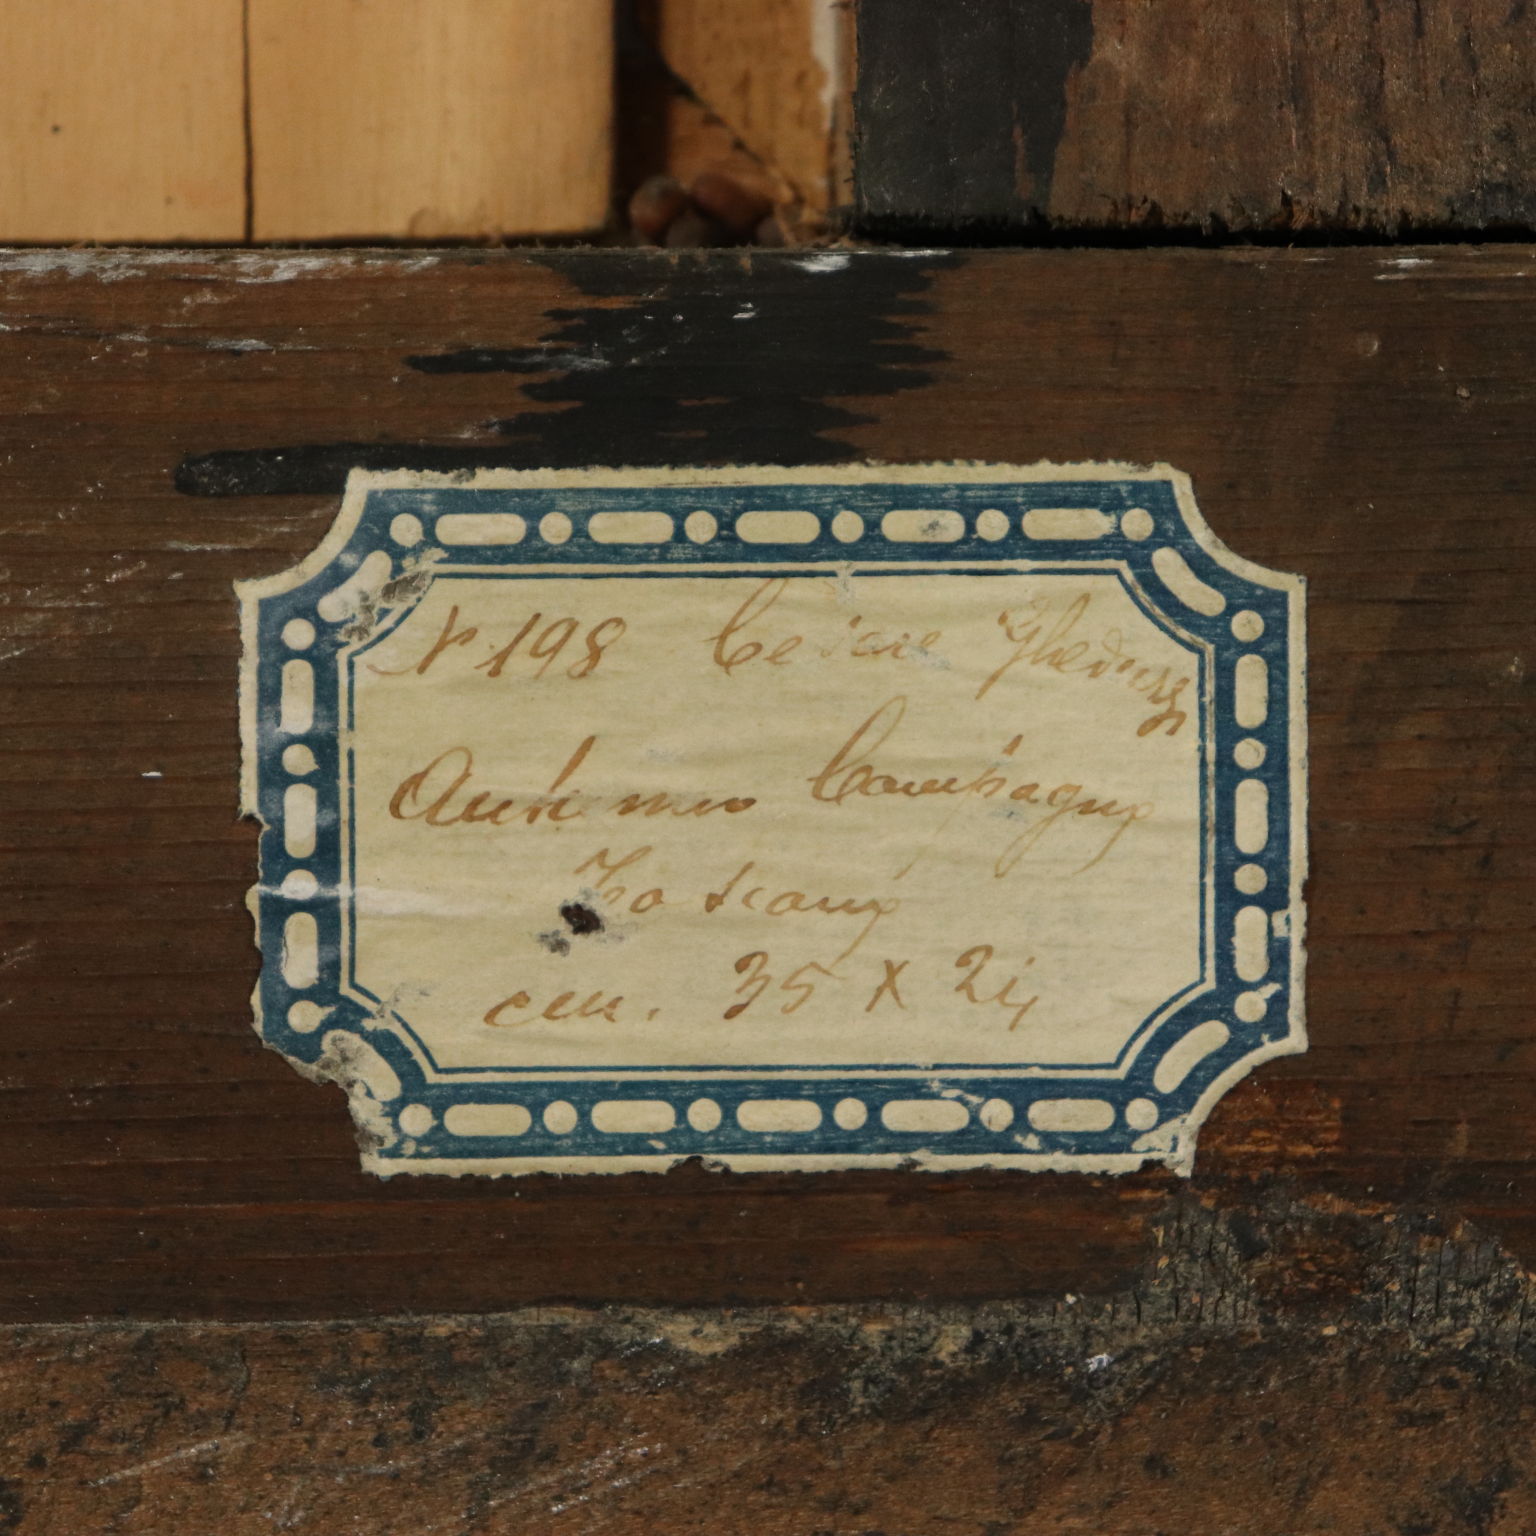 N. 198 Cesare Gheduzzi
Autunno Campagna
Toscana
cm. 35 X 24